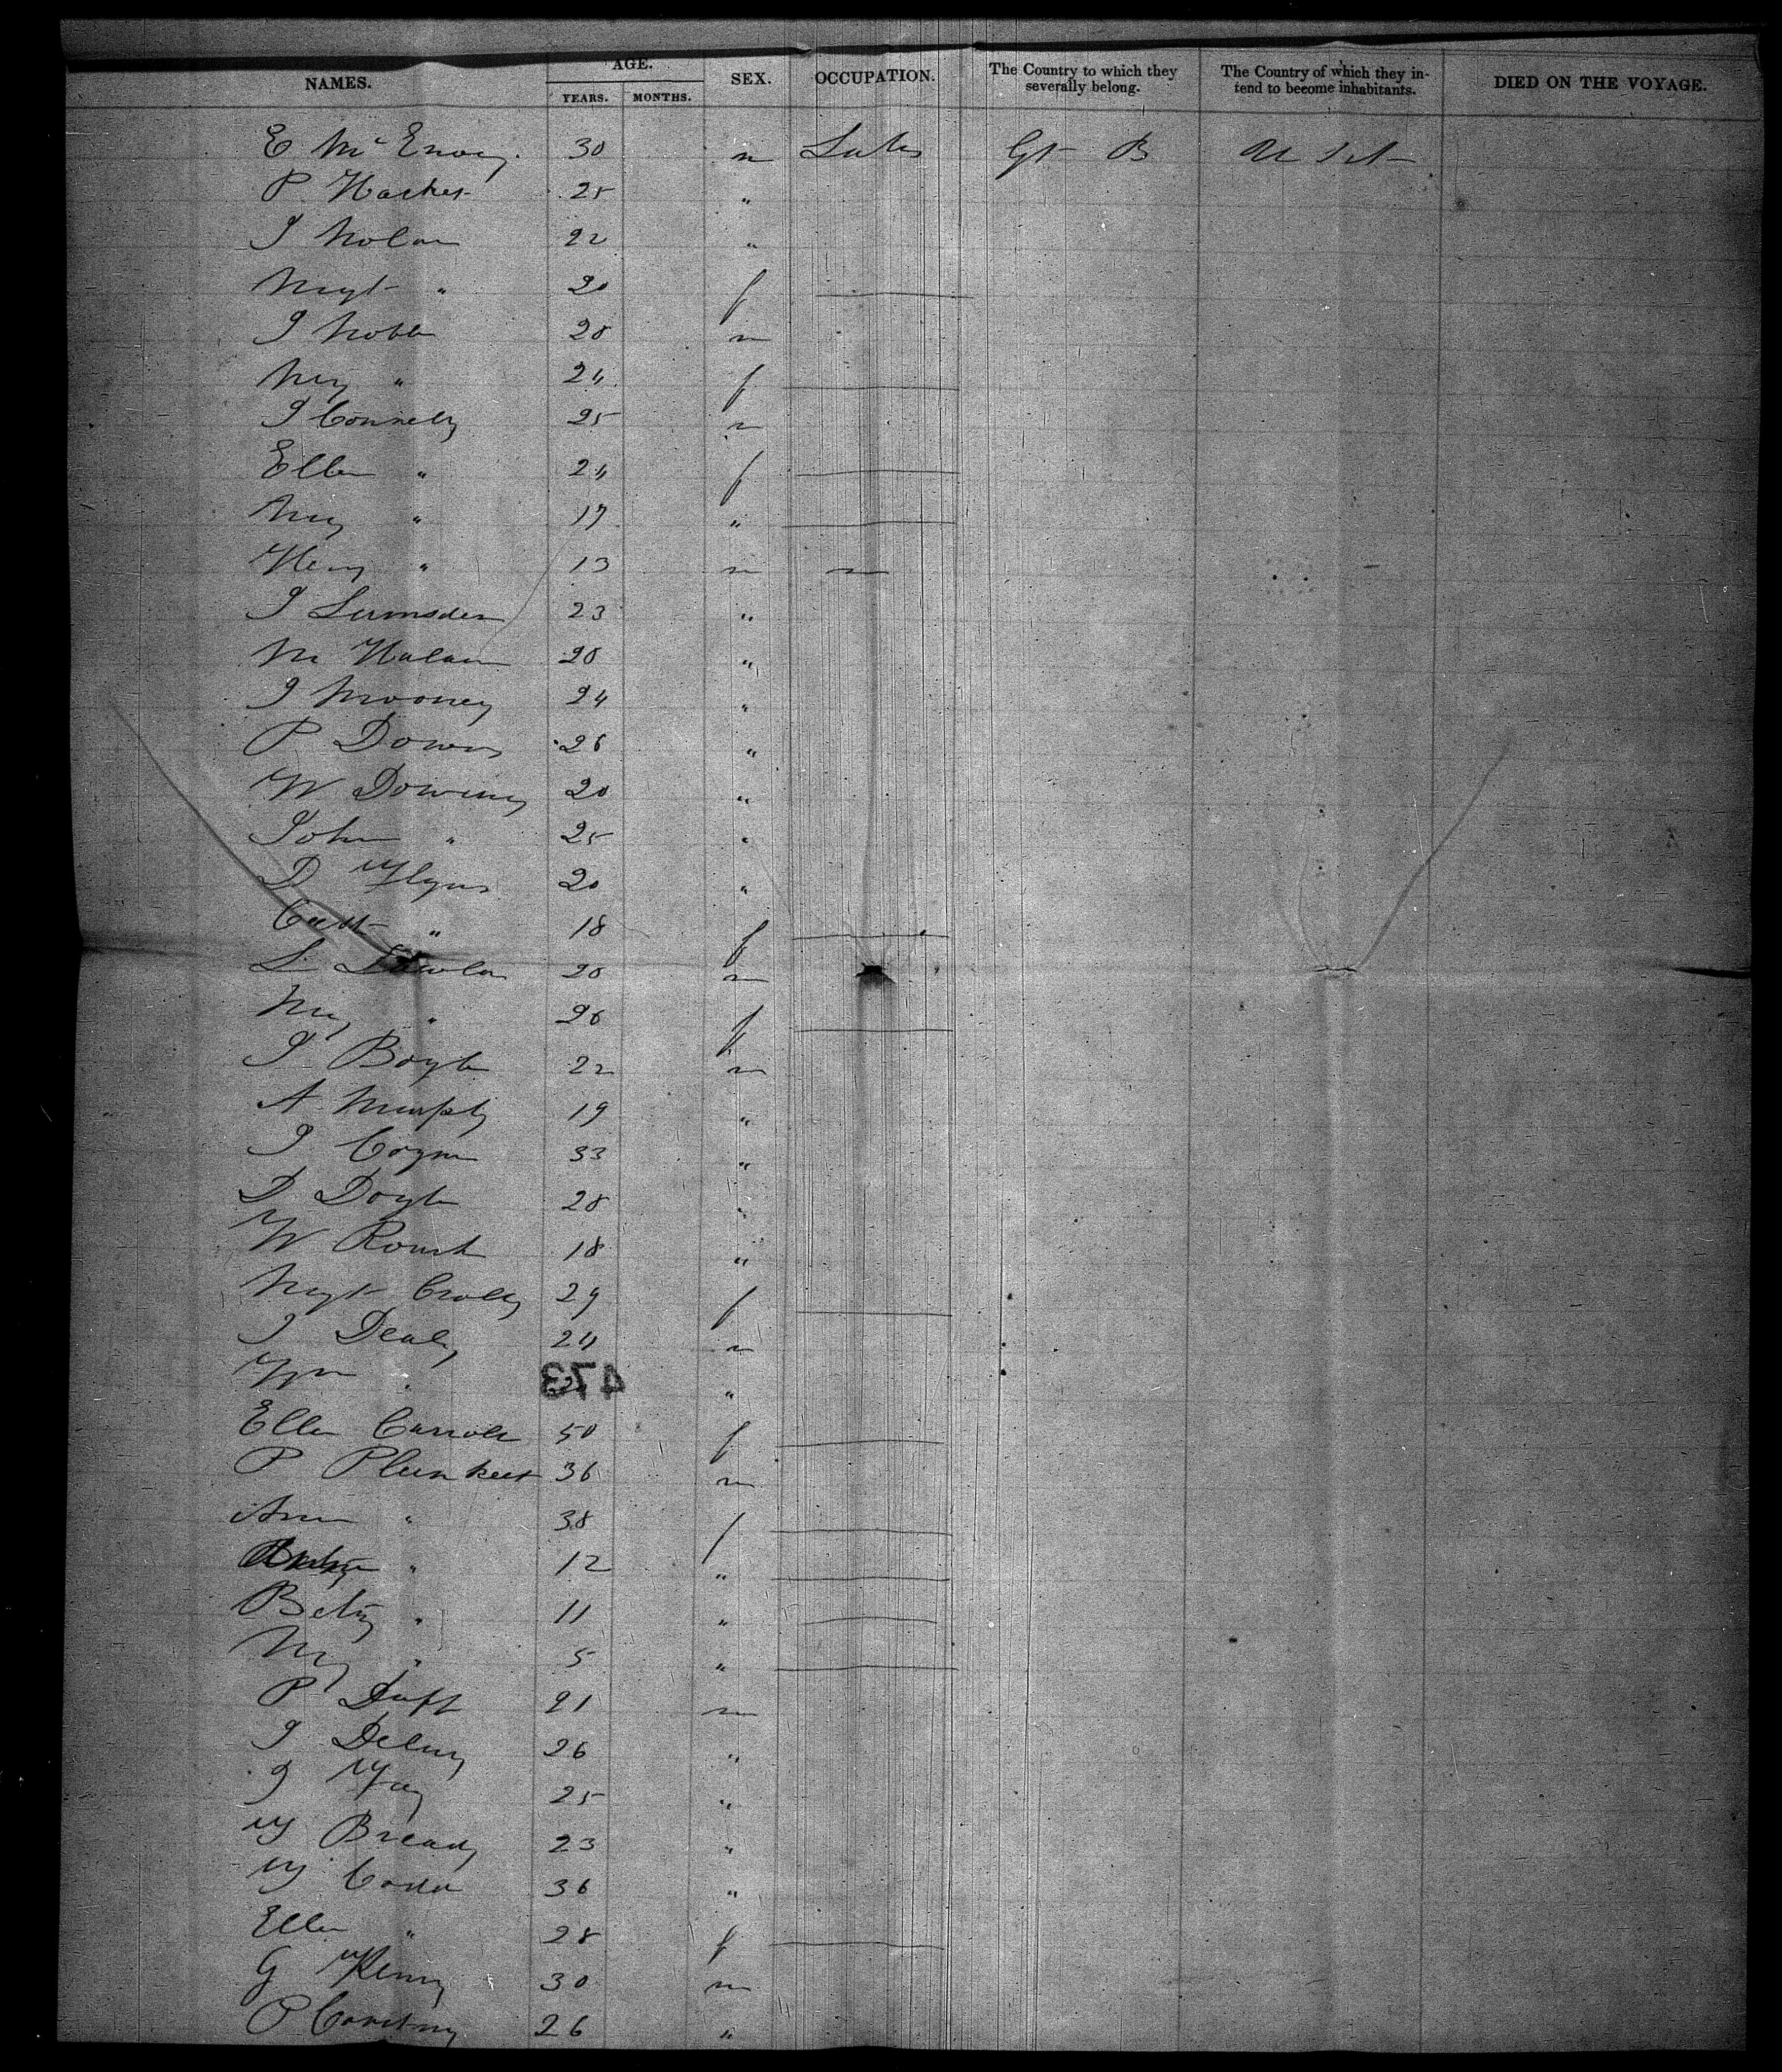 NAMES. AGE. SEX. OCCUPATION. The Country to which they severally belong. The Country of which they intend to become inhabitants. DIED ON THE VOYAGE.
YEARS. MONTHS.
E McEvoy 30 m Gt B U St
P Hacket 25 "
J Nolan 22 "
Mgt " 20 f
J 28 m
My " 24 f
J Connelly 25 m
Ellen " 24 f
My " 17 "
Henry " 13 m
J Lumsden 23 "
M 28 "
J Mooney 24 "
P Downs 26 "
W Downey 20 "
John " 25 "
D Flynn 20 "
Cath " 18 f
L Lawlor 28 m
My " 26 f
J Boyle 22 m
A Murphy 19 "
J Coyne 33 "
D Doyle 28 "
W 18 "
Mgt 29 f
J Dealy 24 m
" "
473
Ellen Carroll 50 f
P Plunkett 36 m
Ann " 38 f
" 12 "
Betsy " 11 "
My " 5 "
P Duff 21 m
J Delany 26 "
J Fay 25 "
M 23 "
M 36 "
Ellen " 28 f
G Kenny 30 m
P Courtney 26 "